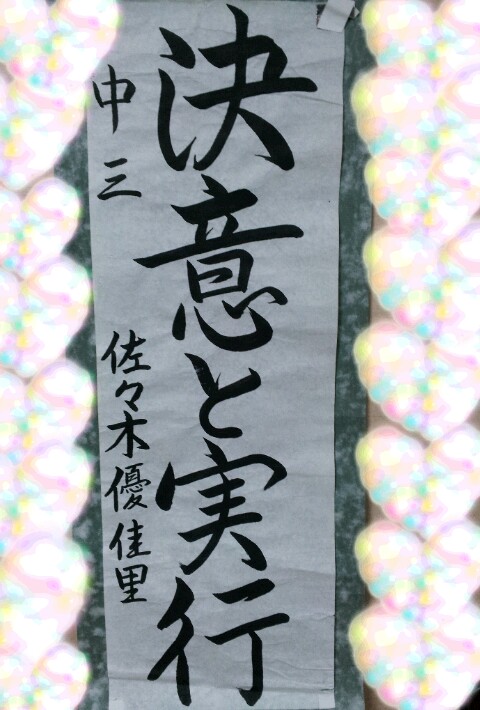 決意と実行
中三 佐々木優佳里